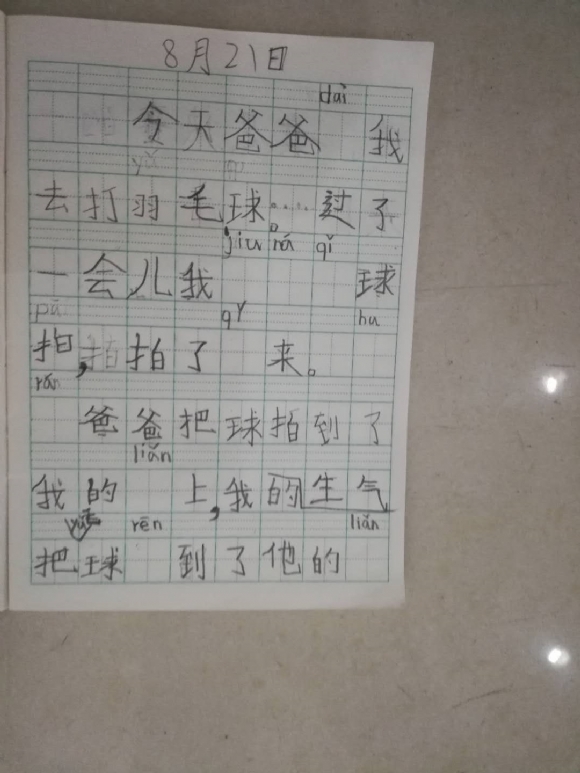 8月21日
dài
今天爸爸 我
去打羽毛球。....过了
jiu ná qǐ
一会儿我 球
pā qǐ hu
拍,拍拍了 来。
rán
爸爸把球拍到了
liǎn
我的 上,我的生气
rēn liǎn
把球 到了他的